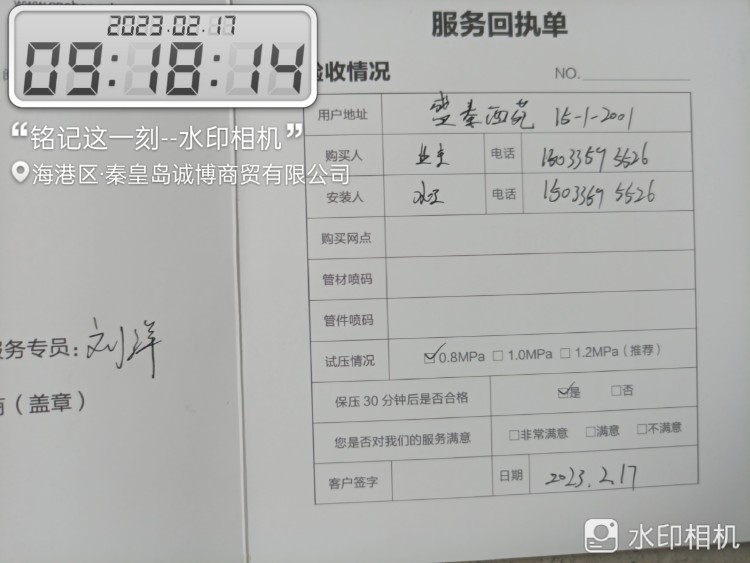 2023.02.17
09:18:14
“铭记这一刻--水印相机”
海港区·秦皇岛诚博商贸有限公司
服务回执单
验收情况
NO.
用户地址 秦西苑 15-1-2001
购买人 业主 电话 15033595526
安装人 水工 电话 15033595526
购买网点
管材喷码
管件喷码
试压情况 ☑0.8MPa □1.0MPa □1.2MPa（推荐）
保压30分钟后是否合格 ☑是 □否
您是否对我们的服务满意 □非常满意 □满意 □不满意
客户签字 日期 2023.2.17
服务专员：刘洋
（盖章）
水印相机